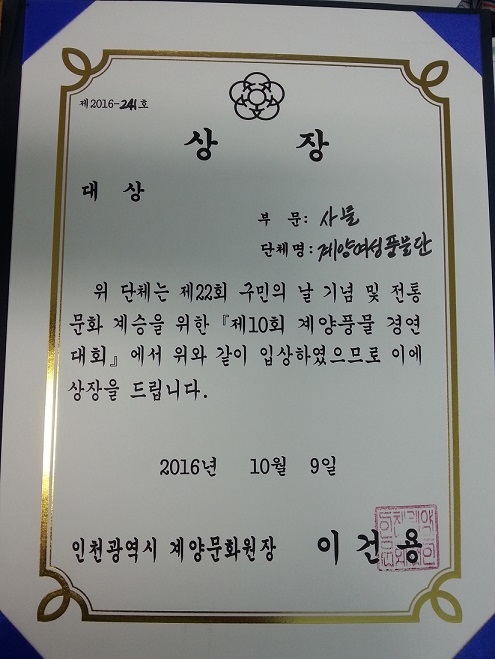 제2016-241호
상 장
대 상
부 문: 사물
단체명: 계양여성풍물단
위 단체는 제22회 구민의 날 기념 및 전통
문화 계승을 위한 『제10회 계양풍물 경연
대회』에서 위와 같이 입상하였으므로 이에
상장을 드립니다.
2016년 10월 9일
인천광역시 계양문화원장 이 건 용